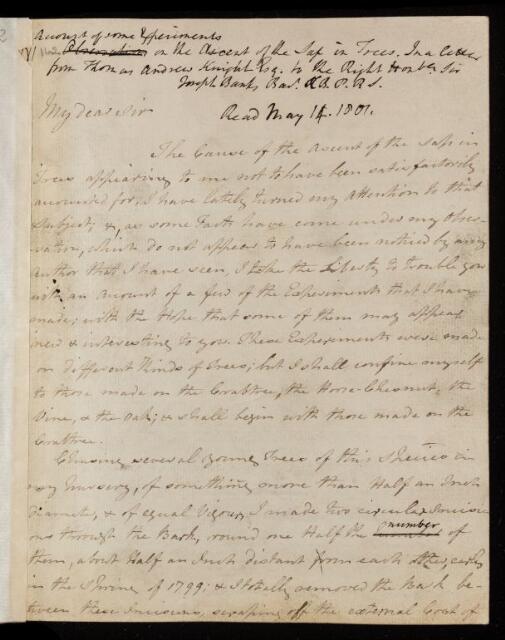 Account of some Experiments
Observations on the Ascent of the Sap in Trees. In a Letter
from Thomas Andrew Knight Esq. to the Right Honble. Sir
Joseph Banks Bart. K.B. P.R.S.
My dear Sir
Read May 14. 1801.
The Cause of the Ascent of the Sap in
Trees appearing to me not to have been satisfactorily
accounted for, I have lately turned my Attention to that
Subject; &, as some Facts have come under my Obser-
vation, which do not appear to have been noticed by any
author that I have seen, I take the Liberty to trouble you
with an Account of a few of the Experiments that I have
made; with the Hope that some of them may appear
new & interesting to you. These Experiments were made
on different Kinds of Trees; but I shall confine myself
to those made on the Crabtree, the Horse-Chesnut, the
Vine, & the Oak; & shall begin with those made on the
Crabtree.
Chusing several young Trees of this Species in
my Nursery, of something more than Half an Inch
diameter, & of equal Vigour, I made two circular Incisi-
ons through the Bark, round one Half the number of
them, about Half an Inch distant from each other, early
in the Spring of 1799; & I totally removed the Bark be-
tween these Incisions, scraping off the external Coat of